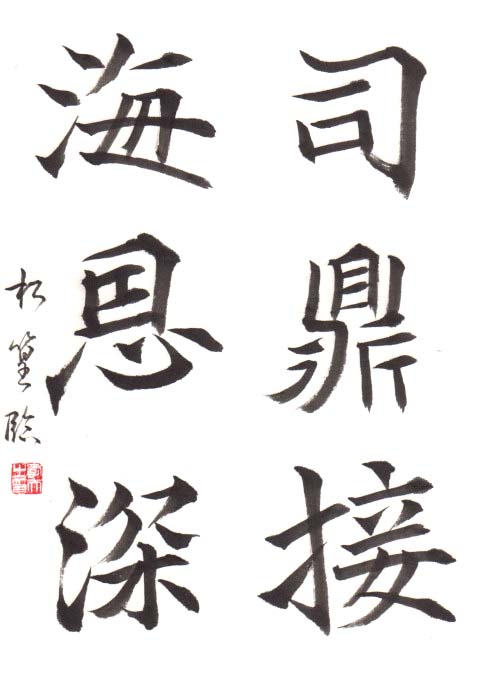 司鼎接
海恩深
松篁臨